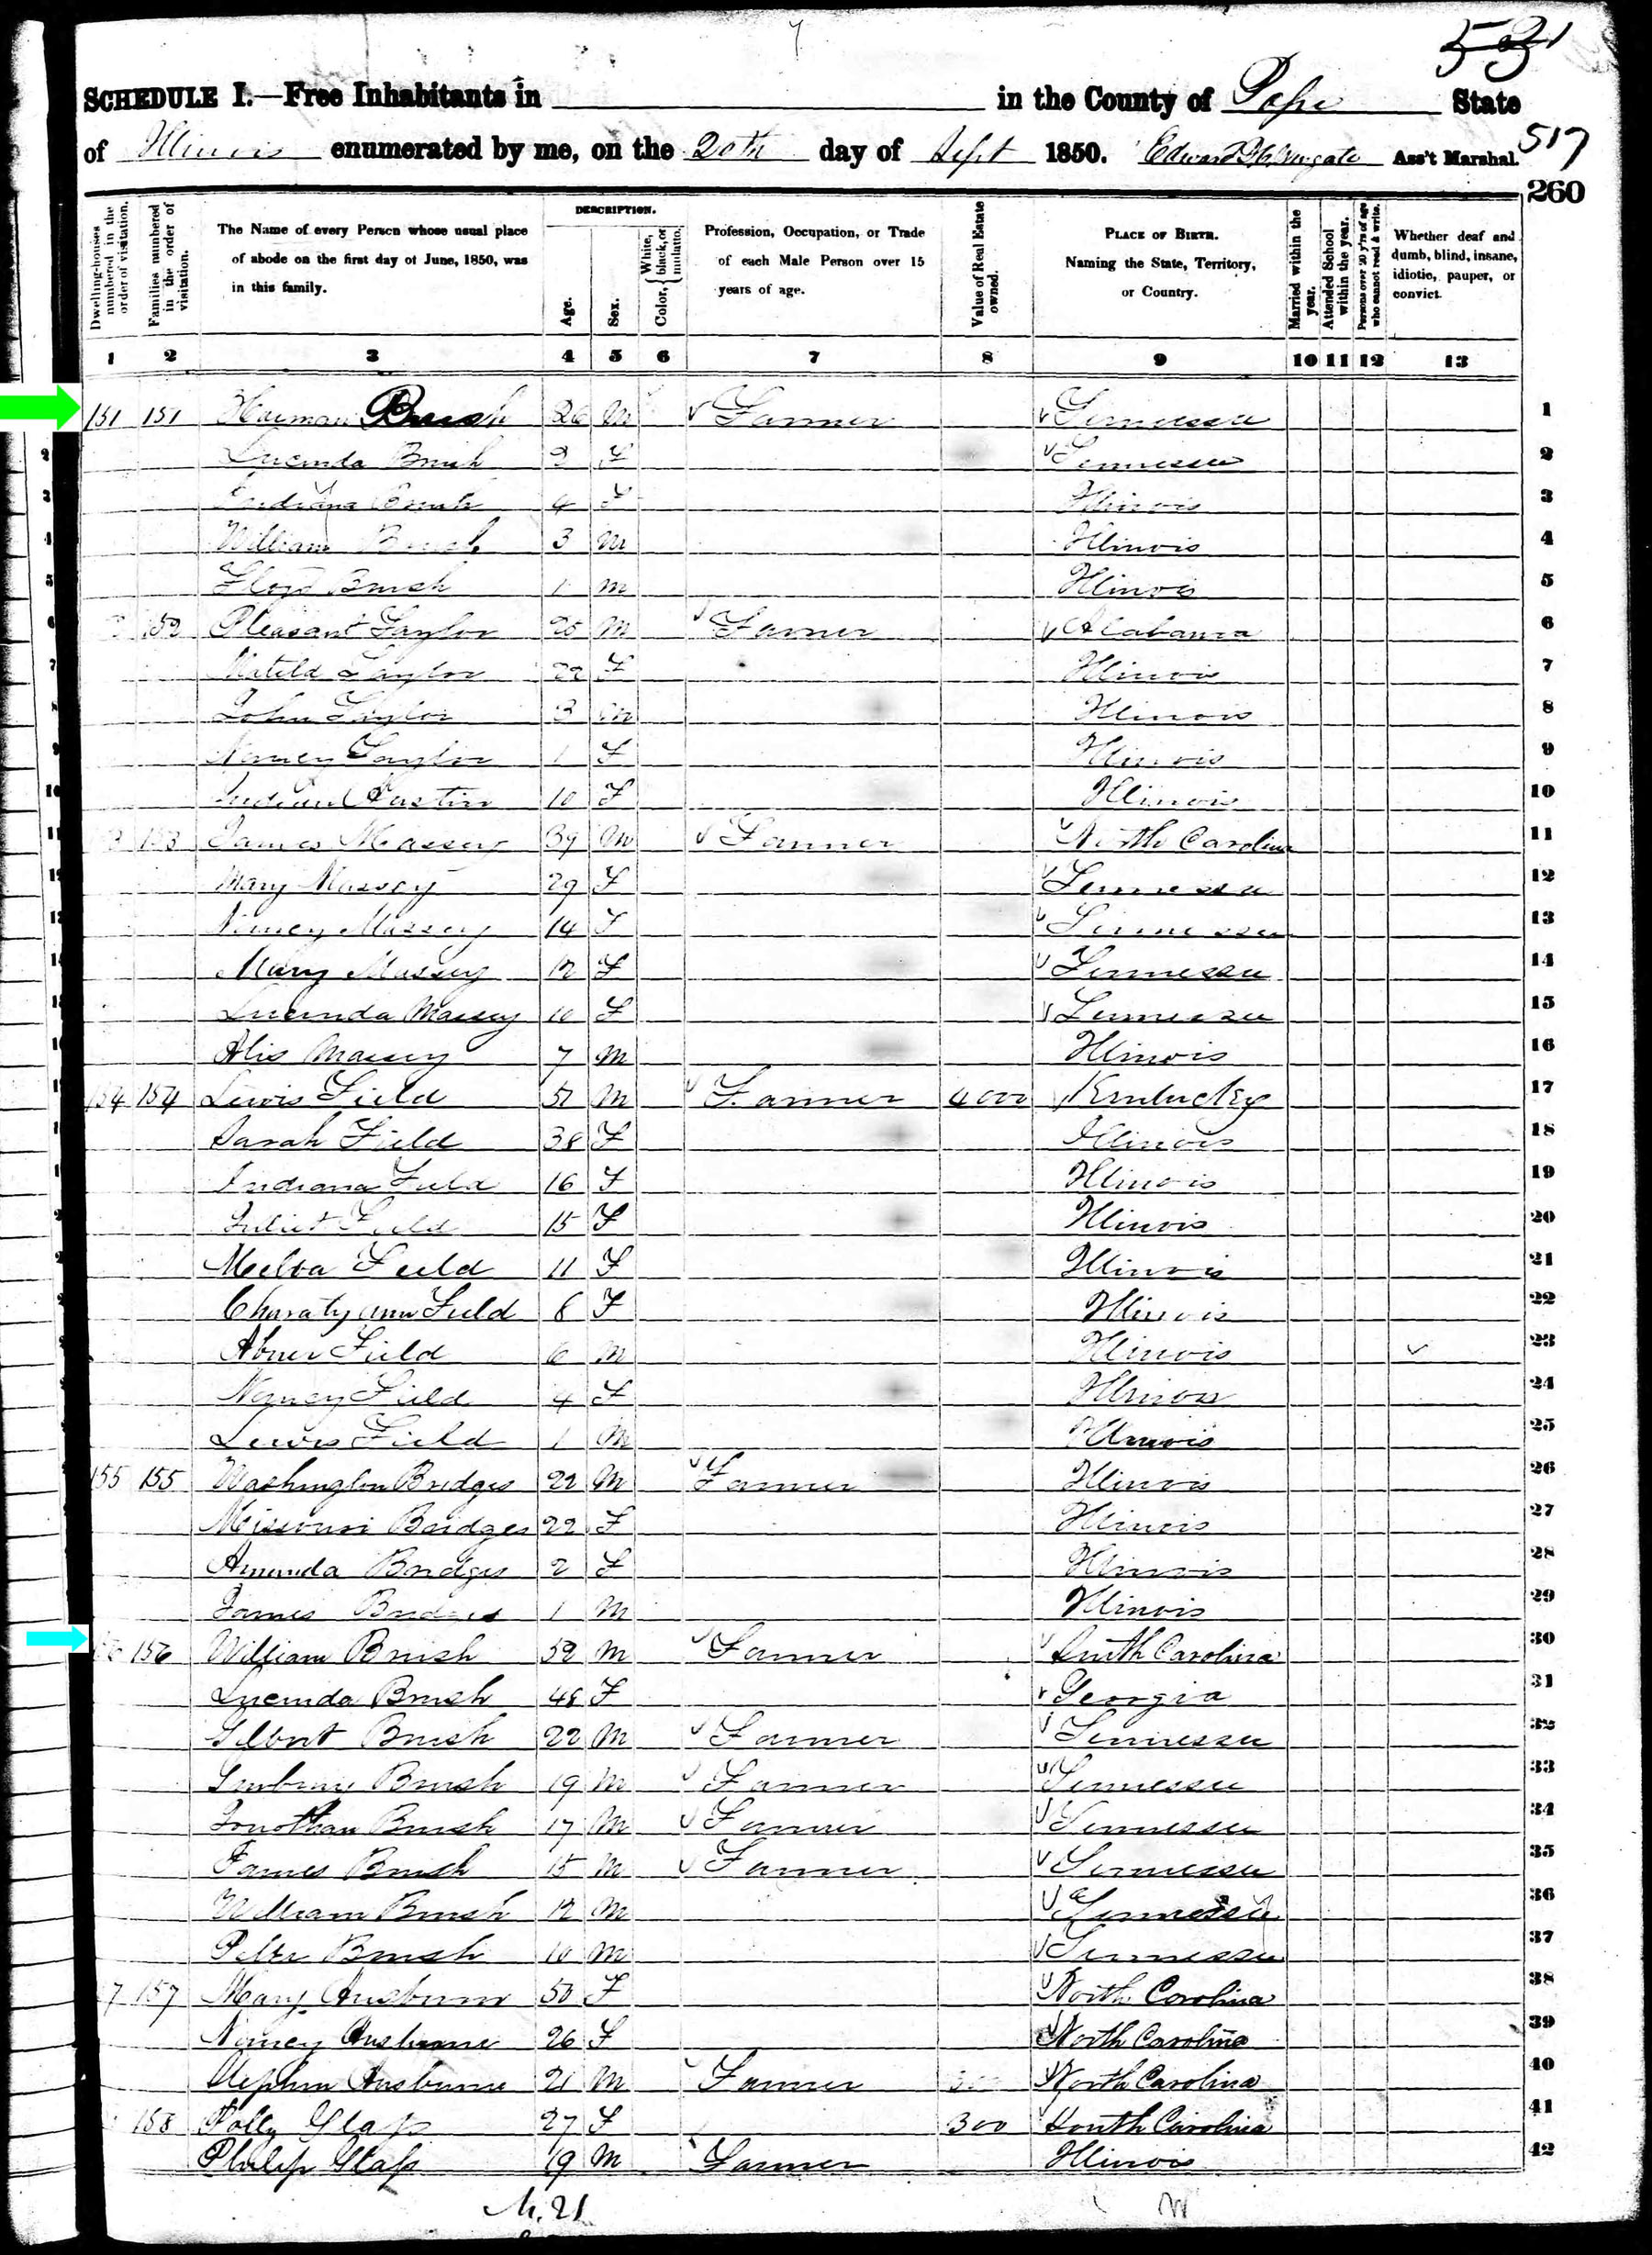 531
SCHEDULE I.—Free Inhabitants in in the County of Pope State
of Illinois enumerated by me, on the 20th day of Sept 1850. Ass't Marshal.
517
260
Dwelling-houses numbered in the order of visitation.
Families numbered in the order of visitation.
The Name of every Person whose usual place of abode on the first day of June, 1850, was in this family.
DESCRIPTION.
Age.
Sex.
Color, { White, black, or mulatto.
Profession, Occupation, or Trade of each Male Person over 15 years of age.
Value of Real Estate owned.
PLACE OF BIRTH. Naming the State, Territory, or Country.
Married within the year.
Attended School within the year.
Persons over 20 y'rs of age who cannot read & write.
Whether deaf and dumb, blind, insane, idiotic, pauper, or convict.
1 2 3 4 5 6 7 8 9 10 11 12 13
151 151 Brush 26 M Farmer Tennessee 1
Lucinda Brush F Tennessee 2
Brush 4 F Illinois 3
William Brush 3 M Illinois 4
Floyd Brush 1 M Illinois 5
152 Pleasant Taylor 25 M Farmer Alabama 6
Taylor 22 F Illinois 7
John Taylor 3 M Illinois 8
Nancy Taylor 1 F Illinois 9
10 F Illinois 10
153 James Massey 39 M Farmer North Carolina 11
Mary Massey 29 F Tennessee 12
Nancy Massey 14 F Tennessee 13
Mary Massey 12 F Tennessee 14
Lucinda Massey 10 F Tennessee 15
Massey 7 M Illinois 16
154 154 Lewis Field 51 M Farmer 4000 Kentucky 17
Sarah Field 38 F Illinois 18
Indiana Field 16 F Illinois 19
Juliet Field 15 F Illinois 20
Field 11 F Illinois 21
Charaty Ann Field 8 F Illinois 22
Abner Field 6 M Illinois 23
Nancy Field 4 F Illinois 24
Lewis Field 1 M Illinois 25
155 155 Washington Bridges 22 M Farmer Illinois 26
Missouri Bridges 22 F Illinois 27
Amanda Bridges 2 F Illinois 28
James Bridges 1 M Illinois 29
156 William Brush 52 M Farmer South Carolina 30
Lucinda Brush 48 F Georgia 31
Brush 22 M Farmer Tennessee 32
Brush 19 M Farmer Tennessee 33
Jonothan Brush 17 M Farmer Tennessee 34
James Brush 15 M Farmer Tennessee 35
William Brush 12 M Tennessee 36
Peter Brush 10 M Tennessee 37
7 157 Mary 50 F North Carolina 38
Nancy 26 F North Carolina 39
21 M Farmer North Carolina 40
158 Polly Glass 27 F 300 South Carolina 41
Philip Glass 19 M Farmer Illinois 42
M. 21